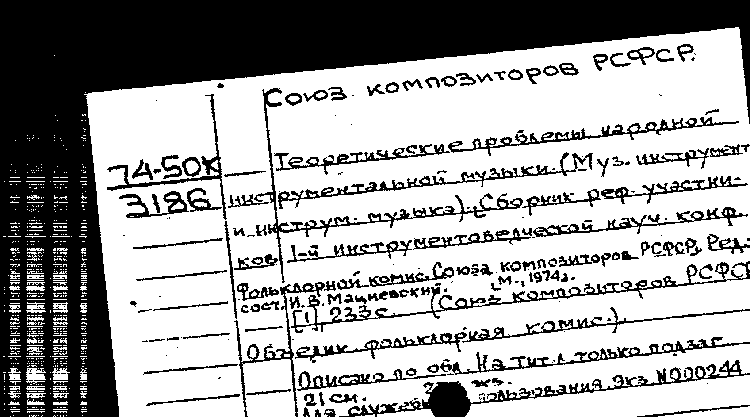 Союз композиторов РСФСР.
74-50К
3186
Теоретические проблемы народной
инструментальной музыки. (Муз. инструмент
и инструм. музыка). Сборник реф. участни-
ков 1-й инструментоведческой науч. конф.
Фольклорной комис. Союза композиторов РСФСР. Ред.-
сост. И. В. Мациевский. М., 1974г.
[1], 233 с. (Союз композиторов РСФСР
Объедин. фольклорная комис.).
Описано по обл. На тит. л. только подзаг.
21 см. экз.
Для служебн пользования. Экз. №000244